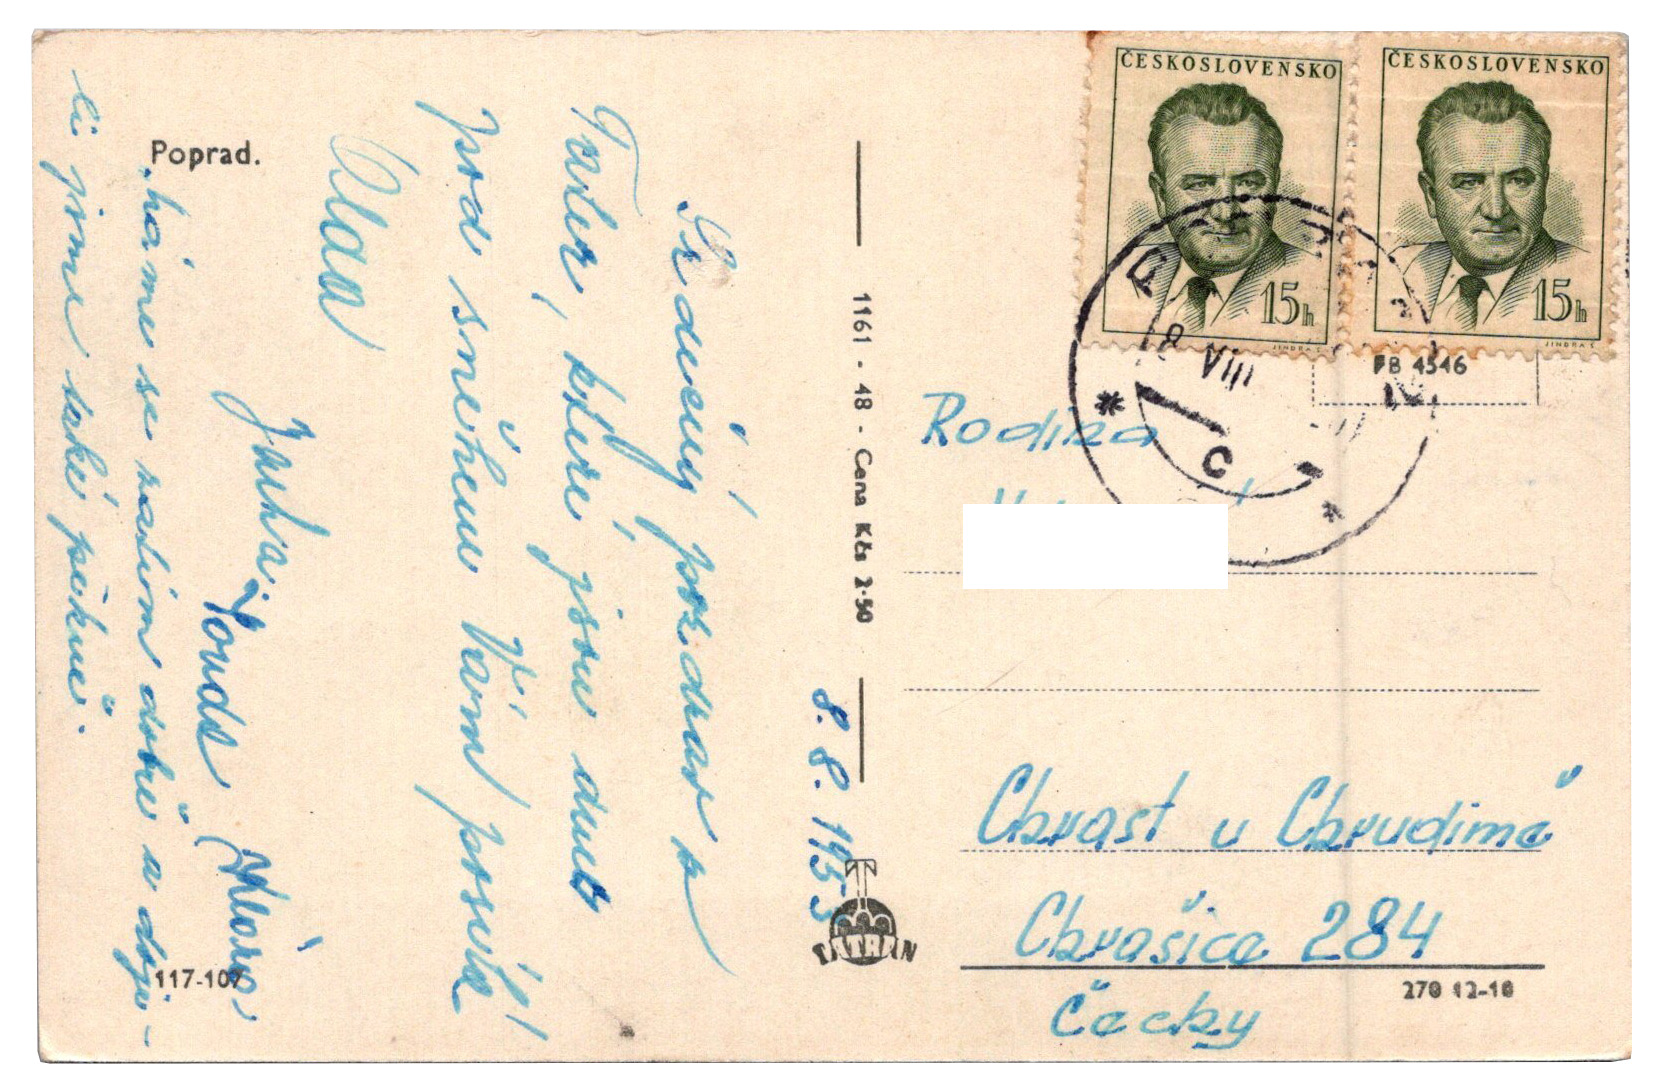 Poprad.
Srdečný pozdrav z
Tater, které jsou dnes
pod sněhem Vám posílá
Olda
Jarka.
máme se zatím dobře a doje-
li jsme také pěkně.
117-107
1161 - 48 - Cena Kčs 2·50
8. 8. 1953
TATRAN
ČESKOSLOVENSKO
15h
JINDRA S.
ČESKOSLOVENSKO
15h
JINDRA S.
FB 4546
8 VIII
C
Rodina
Chrast u Chrudimě
Chrašice 284
Čechy
270 12-10